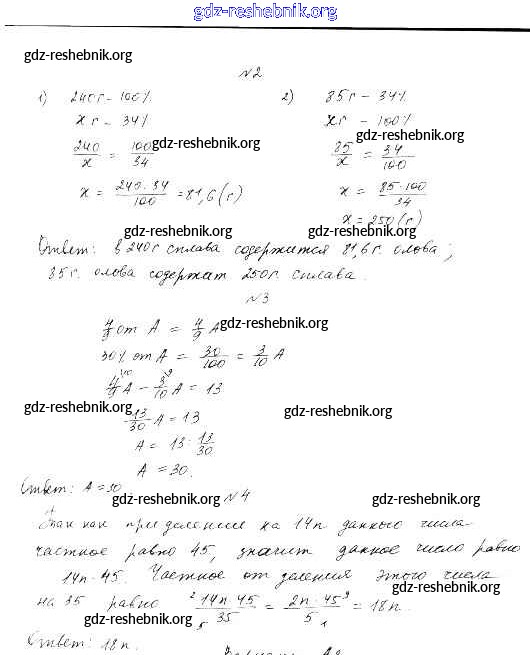 gdz-reshebnik.org
gdz-reshebnik.org
№2
1) 240г - 100% 2) 85г - 34%
xг - 34% xг - 100%
240/x = 100/34 gdz-reshebnik.org 85/x = 34/100 gdz-reshebnik.org
x = 240·34/100 = 81,6 (г) x = 85·100/34
x = 250 (г)
gdz-reshebnik.org gdz-reshebnik.org
Ответ: в 240г сплава содержится 81,6г. олова;
85г. олова содержат 250г. сплава.
№3
4/9 от A = 4/9 A gdz-reshebnik.org
30% от A = 30/100 = 3/10 A
4/9 A - 3/10 A = 13
gdz-reshebnik.org gdz-reshebnik.org
13/30 A = 13
A = 13 · 13/30
A = 30.
Ответ: A = 30
gdz-reshebnik.org №4 gdz-reshebnik.org
Так как при делении на 14n данного числа
частное равно 45, значит данное число равно
14n·45. Частное от деления этого числа
gdz-reshebnik.org
на 35 равно 14n·45/35 = 2n·45/5 = 18n.
gdz-reshebnik.org
Ответ: 18n.